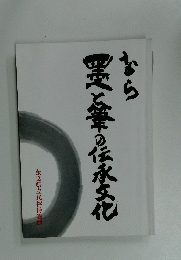 なら
墨と筆の伝承文化